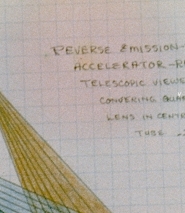 REVERSE EMISSION-
ACCELERATOR-R
TELESCOPIC VIEWE
CONVERING
LENS IN CENTR
TUBE